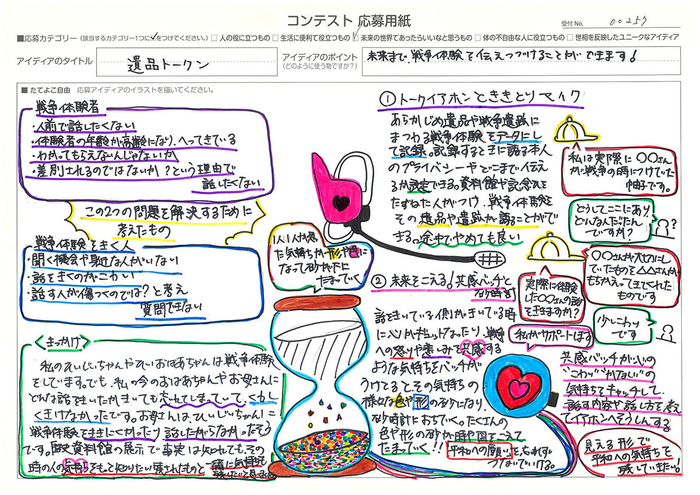 コンテスト 応募用紙
受付No. 00257
■応募カテゴリー(該当するカテゴリー1つに✓をつけてください。) □人の役に立つもの □生活に便利で役立つもの □未来の世界であったらいいなと思うもの □体の不自由な人に役立つもの □世相を反映したユニークなアイディア
アイディアのタイトル
遺品トークン
アイディアのポイント
(どのように使う物ですか?)
未来まで、戦争体験を伝えつづけることができます!
■たてよこ自由 応募アイディアのイラストを描いてください。
戦争体験者
・人前で話したくない
・体験者の年齢が高齢になり、へってきている
・わかってもらえないんじゃないか
・差別されるのではないか?という理由で
話したくない
この2つの問題を解決するために
考えたもの
戦争体験をきく人
・聞く機会や身近な人がいない
・話をきくのがこわい
・話す人が傷つくのでは?と考え
質問できない
<きっかけ>
私のひいじいちゃんやひいおばあちゃんは戦争体験
をしています。でも、私の今のおばあちゃんやお母さんに
どんな話をきいたかきいても忘れてしまっていて、くわしく
きけなかったです。お母さんは、ひいじいちゃんに
戦争体験をききにくかったり話したがらなかったそう
です。歴史資料館の展示で事実は知れても、その
時の人の気持ちをもっと知りたい
1人1人が感じ
た気持ちが形や色に
なって砂が下に
たまっていく
①トークイアホンとききとりマイク
あらかじめ遺品や戦争遺跡に
まつわる戦争体験をデータにし
て記録。記録するときに語る本人
のプライバシーやどこまで伝え
るか設定できる。資料館や記念館を
たずねた人がつけ、戦争体験を
その遺品や遺跡が語ることがで
きる。途中でやめても良い
②未来をこえる!共感バッチと
砂時計
話をきいている側がきいている時
に心がギュッとなったり、戦争
への怒りや悲しみで共感する
ような気持ちをバッチが
うけとるとその気持ちの
様々な色や形の砂になり、
砂時計におちていく。たくさんの
色や形の砂が時や国をこえて
たまっていく!!
平和への願いを忘れず
つないでいける。
私は実際に〇〇さん
が戦争の時につけていた
帽子です。
どうしてここにあり
どんな人だったん
ですか?
〇〇さんが大切にし
ていたものを△△さんが
もちかえってきてくれた
ものです
実際に体験
した〇〇さんの話
をききますか?
少しこわい
です
私がサポートします
共感バッチが心の
"こわい""かなしい"の
気持ちをキャッチして、
話す内容や話し方を考え
てイアホンへそうしんする
見える形で
平和への気持ちを
残していきたい!